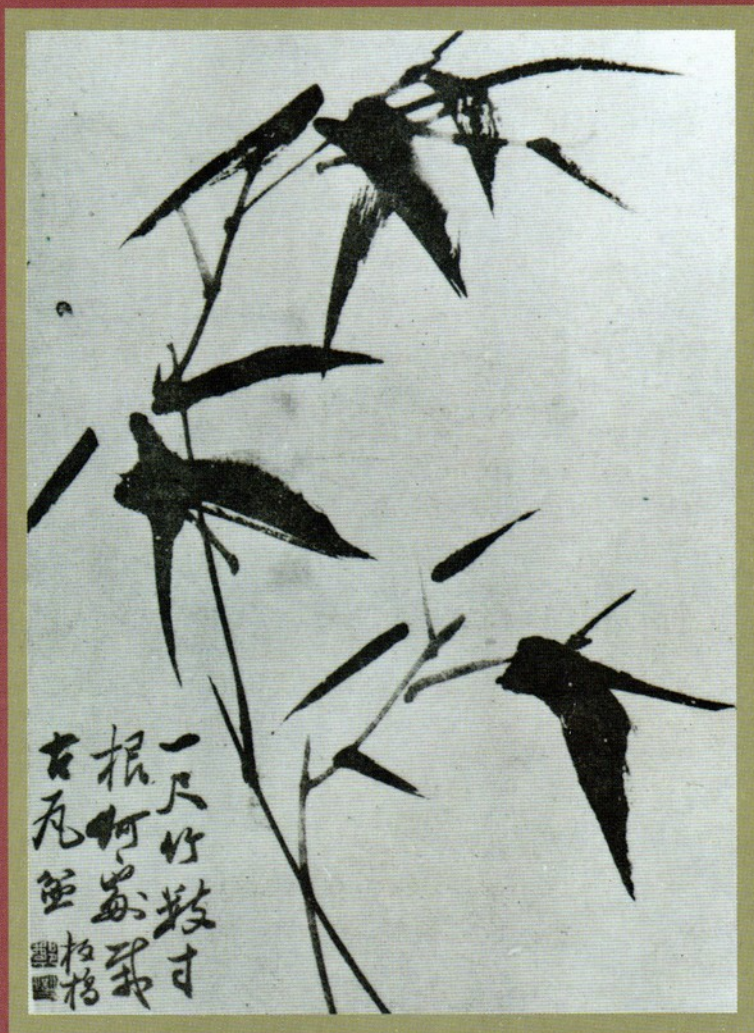 一尺竹數寸
根何歲栽
古瓦盆
板橋